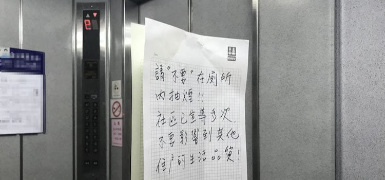 請"不要"在廁所
內抽煙!!
社區已宣導多次
不要影響到其他
住戶的生活品質!